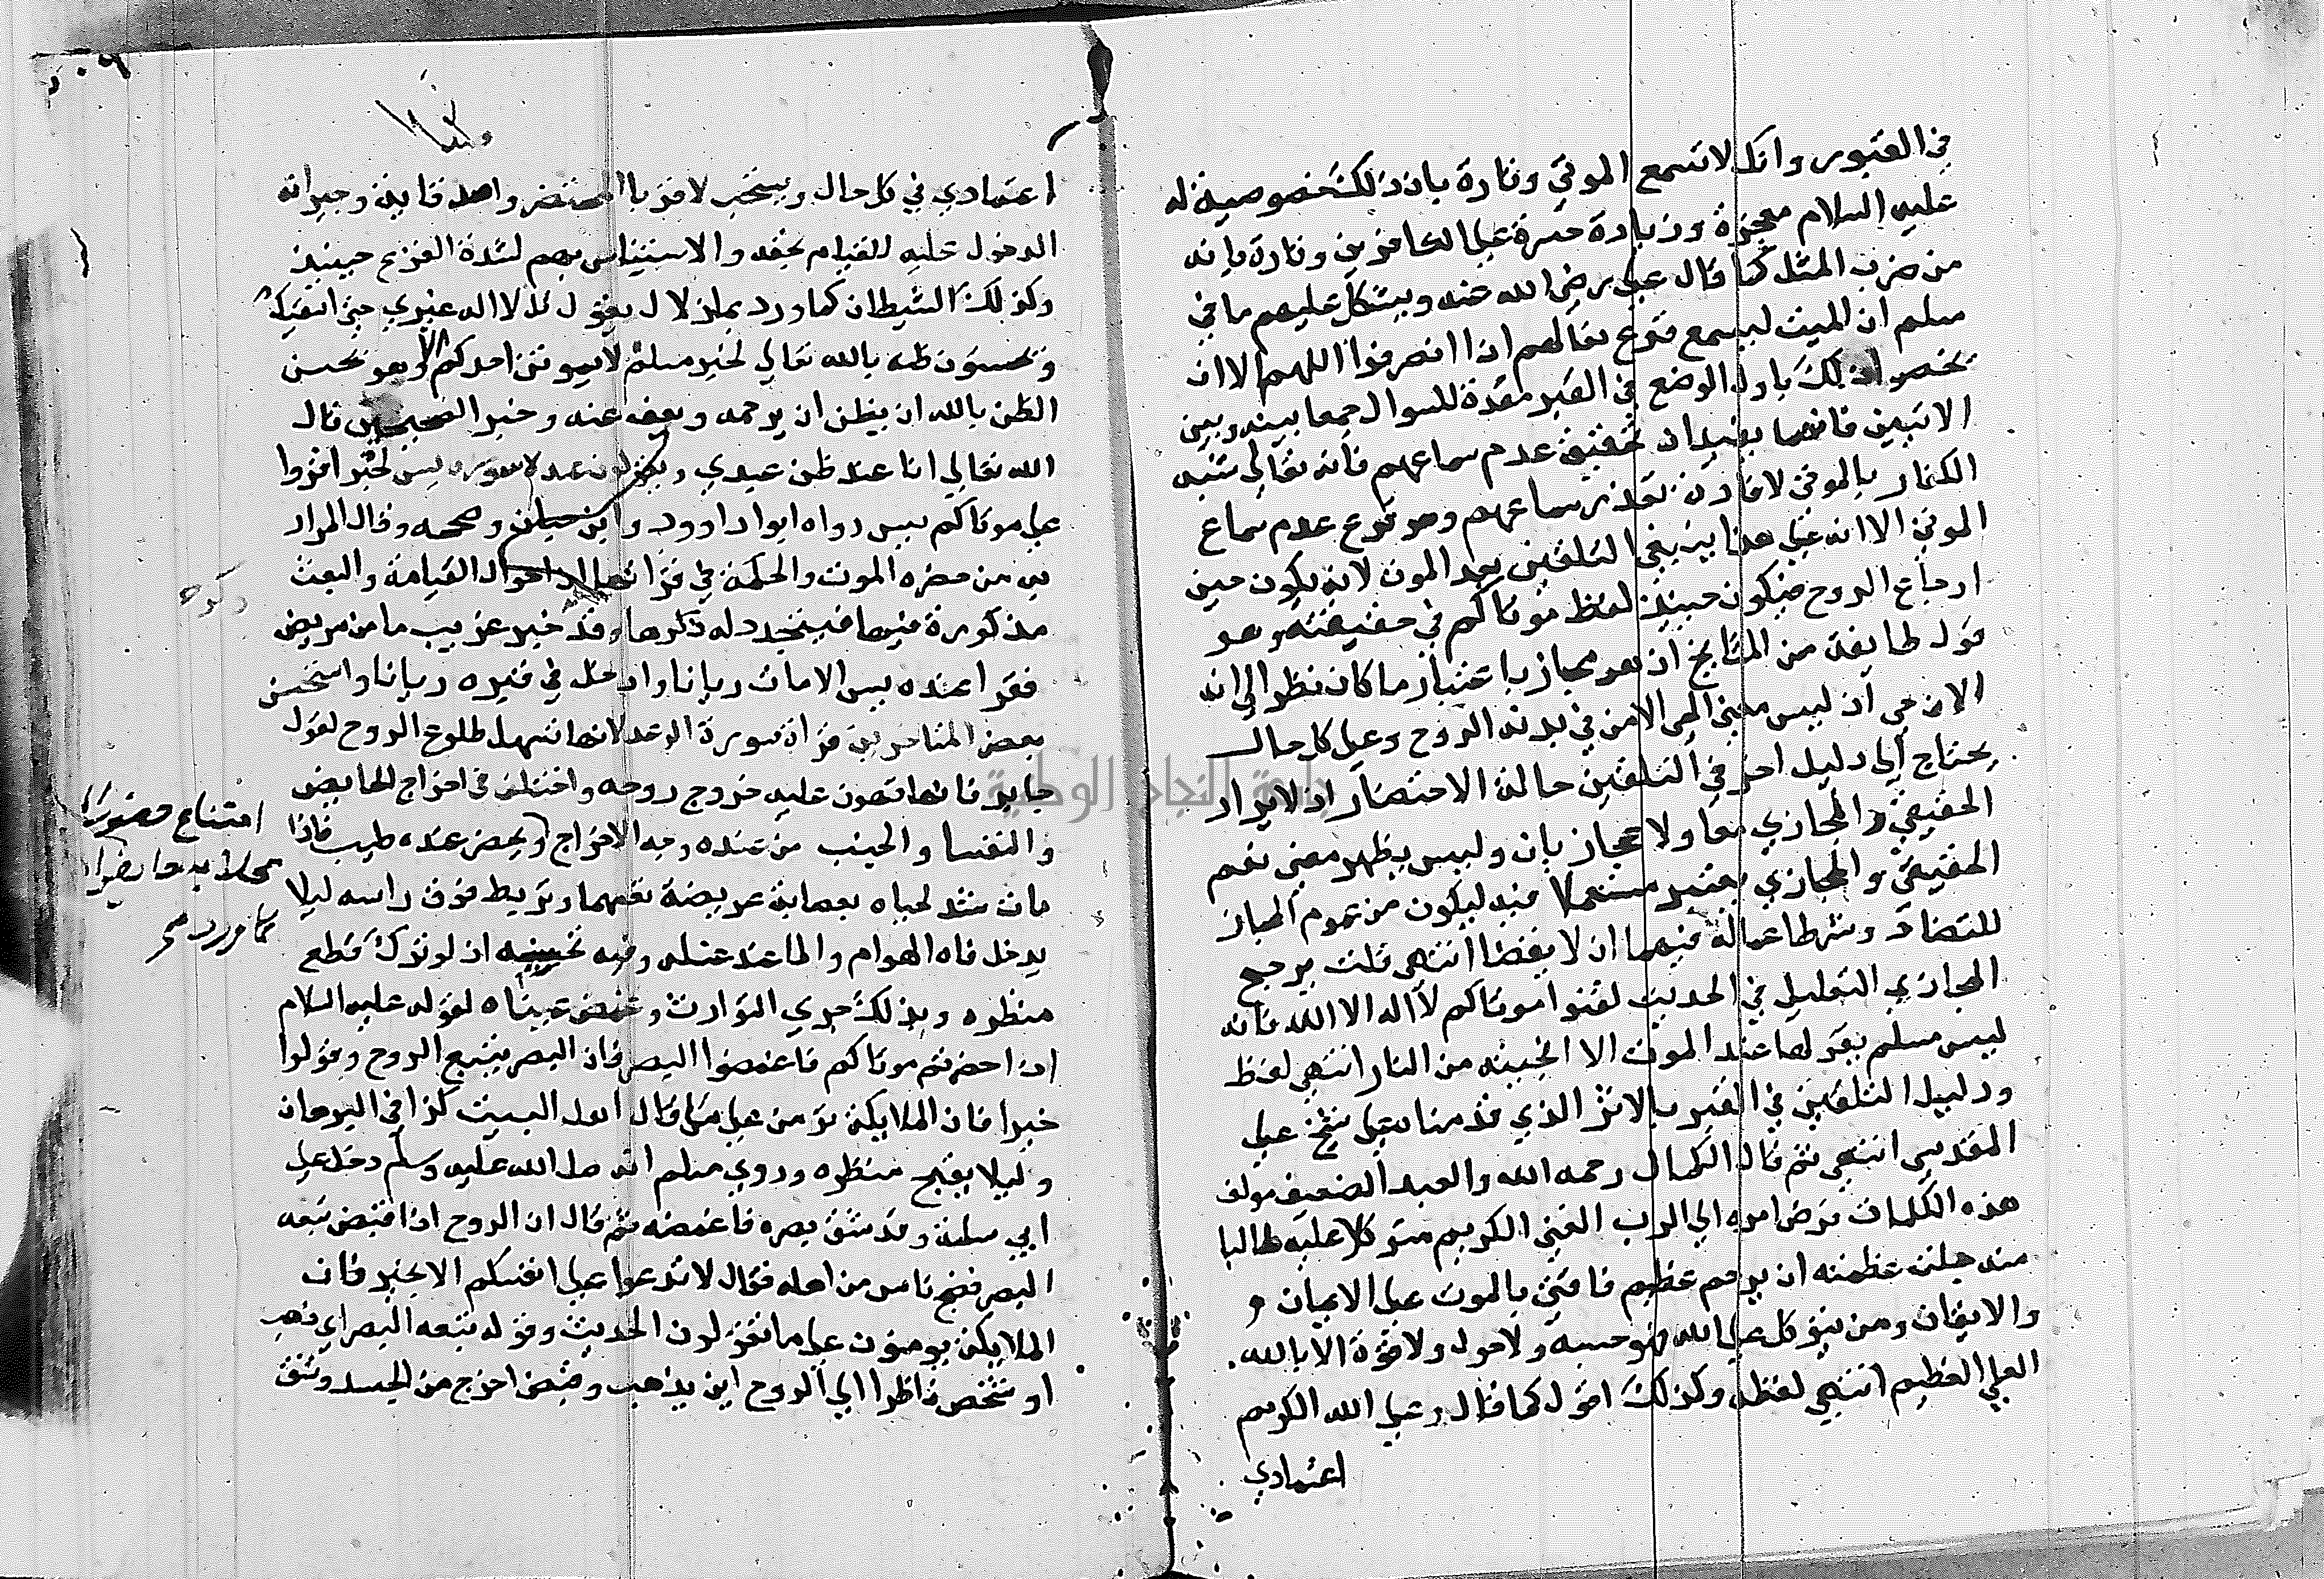 في القبور وانك لا تسمع الموتي وتارة بان ذلك خصوصية له
عليه السلام معجزة وزيادة حسرة علي الكافرين وتارة بانه
من ضرب المثل كما قال علي رضي الله عنه ويشكل عليهم ما في
مسلم ان الميت ليسمع قرع نعالهم اذا انصرفوا اللهم الا ان
يخصوا ذلك باول الوضع في القبر مقدمة للسوال جمعا بينه وبين
الايتين فانهما يفيدان تحقيق عدم سماعهم فانه تعالي شبه
الكفار بالموتي لافادة تعذر سماعهم وهو فرع عدم سماع
الموتي الا انه علي هذا ينبغي التلقين بعد الموت لانه يكون حين
ارجاع الروح فيكون حينيذ لفظ موتاكم في حقيقته وهو
قول طايفة من المشايخ او هو مجاز باعتبار ما كان نظرا الي انه
الان حي اذ ليس معني الحي الا من في بدنه الروح وعلي كل حال
يحتاج الي دليل اخر في التلقين حالة الاحتضار اذ لا يراد
الحقيقي والمجازي معا ولا مجازيان وليس يظهر معني نعم
الحقيقي والمجازي يعتبر مستعملا فيه ليكون من عموم المجاز
للتضاد وشرط اعماله فيهما ان لا يتضادا انتهي قلت يرجح
المجازي التعليل في الحديث لقنوا موتاكم لا اله الا الله فانه
ليس مسلم يقولها عند الموت الا انجته من النار انتهي لفظ
ودليل التلقين في القبر بالاثر الذي قدمناه علي شيخ علي
المقدسي انتهي ثم قال الكمال رحمه الله والعبد الضعيف مولف
هذه الكلمات فوض امره الي الرب الغني الكريم متوكلا عليه طالبا
منه جلت عظمته ان يرحم عظيم فاقتي بالموت علي الايمان و
والايقان ومن يتوكل علي الله فهو حسبه ولا حول ولا قوة الا بالله
العلي العظيم انتهي لفظه وكذلك اقول كما قال وعلي الله الكريم
اعتمادي
اعتمادي في كل حال ويستحب لاقربا المحتضر واصدقايه وجيرانه
الدخول عليه للقيام بحقه والاستيناس بهم لشدة الفزع حينيذ
وكذلك الشيطان كما ورد بماء زلال يقول قل لا اله غيري حتي اسقيك
ويحسنون ظنه بالله تعالي لخبر مسلم لا يموتن احدكم الا وهو يحسن
الظن بالله ان يظن ان يرحمه ويعفو عنه وخبر الصحيحين قال
الله تعالي انا عند ظن عبدي ويقرؤن عنده سورة يس لخبر اقروا
علي موتاكم يس رواه ابو داوود وابن حبان وصححه وقال المراد
به من حضره الموت والحكمة في قراتها ان احوال القيامة والبعث
مذكورة فيها فيتجدد له ذكرها وفي خبر غريب ما من مريض
فقرا عنده يس الا مات ريانا وادخل في قبره ريانا واستحسن
بعض المتاخرين قراة سورة الرعد لانها تسهل طلوع الروح لقول
جابر فانها تهون عليه خروج روحه واختلف في اخراج الحايض
والنفسا والجنب من عنده وجه الاخراج ويحضر عنده طيب فاذا
امتناع حضور الملايكة
محلا به حايض
كما ورد
مات شد لحياه بعصابة عريضة تعمهما وتربط فوق راسه ليلا
يدخل فاه الهوام والماء عند غسله وفيه تحسينه اذ لو ترك فظع
منظره وبذلك جري التوارث وغمض عيناه لقوله عليه السلام
اذا حضرتم موتاكم فاغمضوا البصر فان البصر يتبع الروح وقولوا
خيرا فان الملايكة تؤمن علي ما قال اهل البيت كذا في البرهان
وليلا يقبح منظره وروي مسلم انه صلي الله عليه وسلم دخل علي
ابي سلمة وقد شق بصره فاغمضه ثم قال ان الروح اذا قبض تبعه
البصر فضج ناس من اهله فقال لا تدعوا علي انفسكم الا بخير فان
الملايكة يومنون علي ما تقولون الحديث وقوله تبعه البصر اي ذهب
او شخص ناظرا الي الروح اين يذهب وقبض اخرج من الجسد وشق